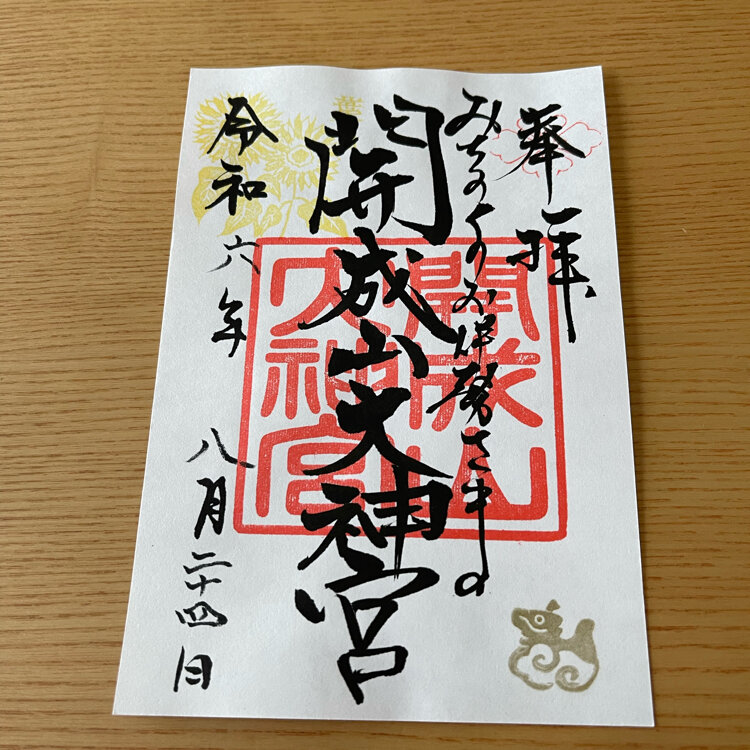 奉拝
みちのくのお伊勢さま
開成山大神宮
開成山
大神宮
葉
令和六年 八月二十四日